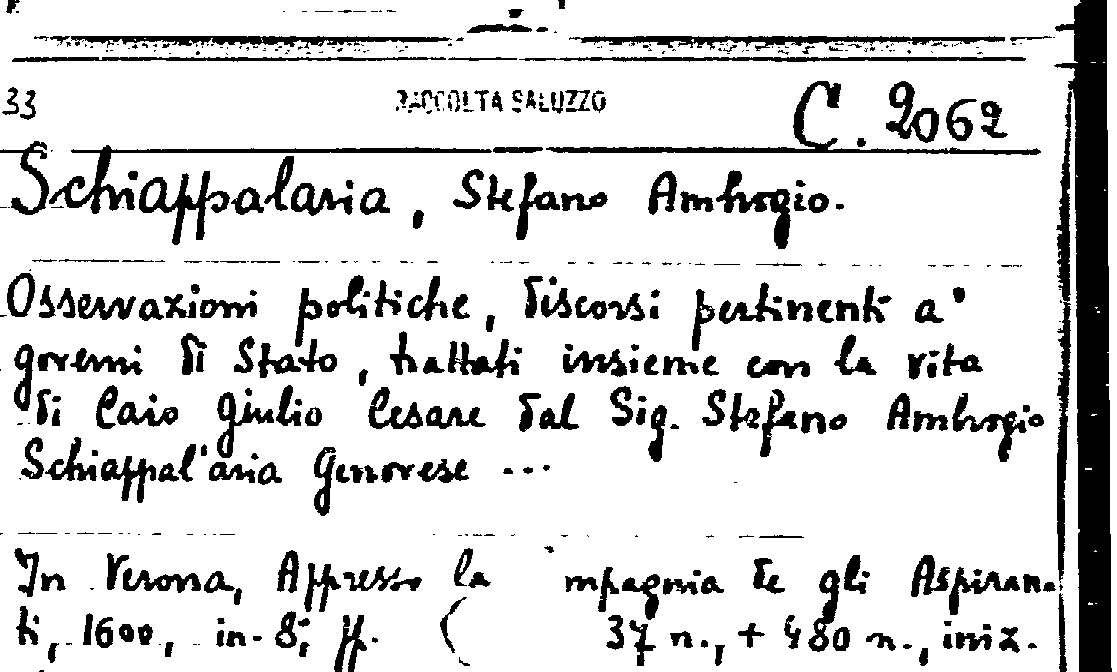 33 RACCOLTA SALUZZO C. 2062
Schiappalaria, Stefano Ambrogio.
Osservazioni politiche, discorsi pertinenti a'
governi di Stato, trattati insieme con la vita
di Caio Giulio Cesare dal Sig. Stefano Ambrogio
Schiappal'aria Genovese ...
In Verona, Appresso la mpagnia de gli Aspiran-
ti, 1600, in-8°, ff. ( 37 n., + 480 n., iniz.